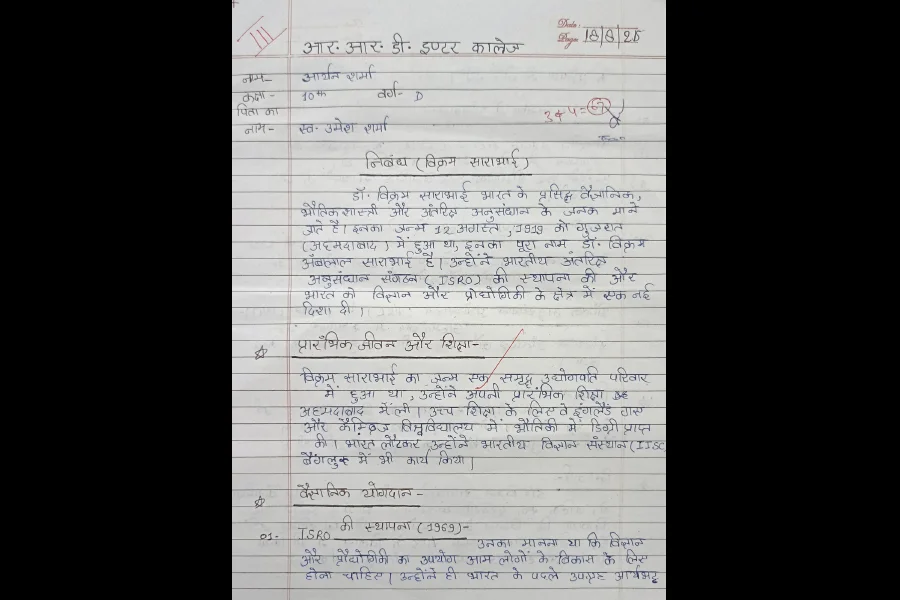 आर. आर. डी. इण्टर कालेज
Date:
Page: 18/8/25
नाम- आर्यन शर्मा
कक्षा- 10th वर्ग- D
पिता का
नाम- स्व. उमेश शर्मा
निबंध (विक्रम साराभाई)
डॉ. विक्रम साराभाई भारत के प्रसिद्ध वैज्ञानिक,
भौतिक शास्त्री और अंतरिक्ष अनुसंधान के जनक माने
जाते है। इनका जन्म 12 अगस्त, 1919 को गुजरात
(अहमदाबाद) में हुआ था, इनका पूरा नाम डॉ. विक्रम
अंबालाल साराभाई है। उन्होंने भारतीय अंतरिक्ष
अनुसंधान संगठन (ISRO) की स्थापना की और
भारत को विज्ञान और प्रोद्योगिकी के क्षेत्र में एक नई
दिशा दी।
प्रारंभिक जीवन और शिक्षा-
विक्रम साराभाई का जन्म एक समृद्ध उद्योगपति परिवार
में हुआ था, उन्होंने अपनी प्रारंभिक शिक्षा
अहमदाबाद में ली। उच्च शिक्षा के लिए वे इंग्लैंड गए
और कैम्ब्रिज विश्वविद्यालय में भौतिकी में डिग्री प्राप्त
की। भारत लौटकर उन्होंने भारतीय विज्ञान संस्थान (IISC
बेंगलुरु में भी कार्य किया।
वैज्ञानिक योगदान-
01- ISRO की स्थापना (1969)-
उनका मानना था कि विज्ञान
और प्रौद्योगिकी का उपयोग आम लोगों के विकास के लिए
होना चाहिए। उन्होंने ही भारत के पहले उपग्रह आर्यभट्ट